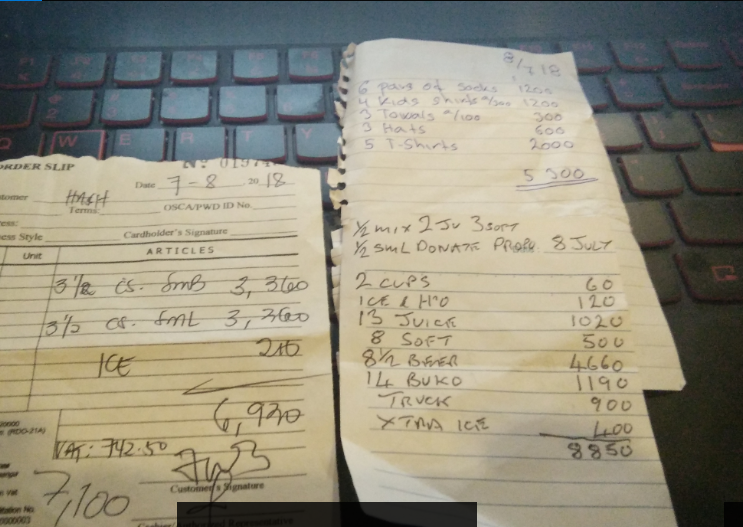 ORDER SLIP
Date 7-8 2018
tomer HASH
Terms:
OSCA/PWD ID No.
ess:
ess Style
Cardholder's Signature
Unit
ARTICLES
3 1/2 cs. SMB 3,360
3 1/2 cs. SML 3,360
ICE 210
6,930
(RDO-21A)
VAT: 742.50
7,100
Customer's Signature
8/7/18
6 pairs of socks 1200
4 Kids shirts @/300 1200
3 Towals @/100 300
3 Hats 600
5 T-Shirts 2000
5 300
1/2 mix 2 JU 3 SOFT
1/2 SML DONATE 8 JULY
2 CUPS 60
ICE & H²O 120
13 JUICE 1020
8 SOFT 500
8 1/2 BEER 4660
14 BUKO 1190
TRUCK 900
XTRA ICE 400
8850